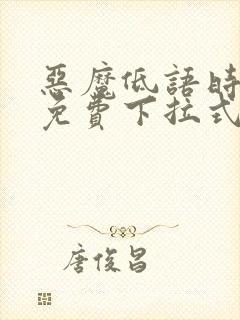 惡魔低語時
免費下拉式
唐俊昌